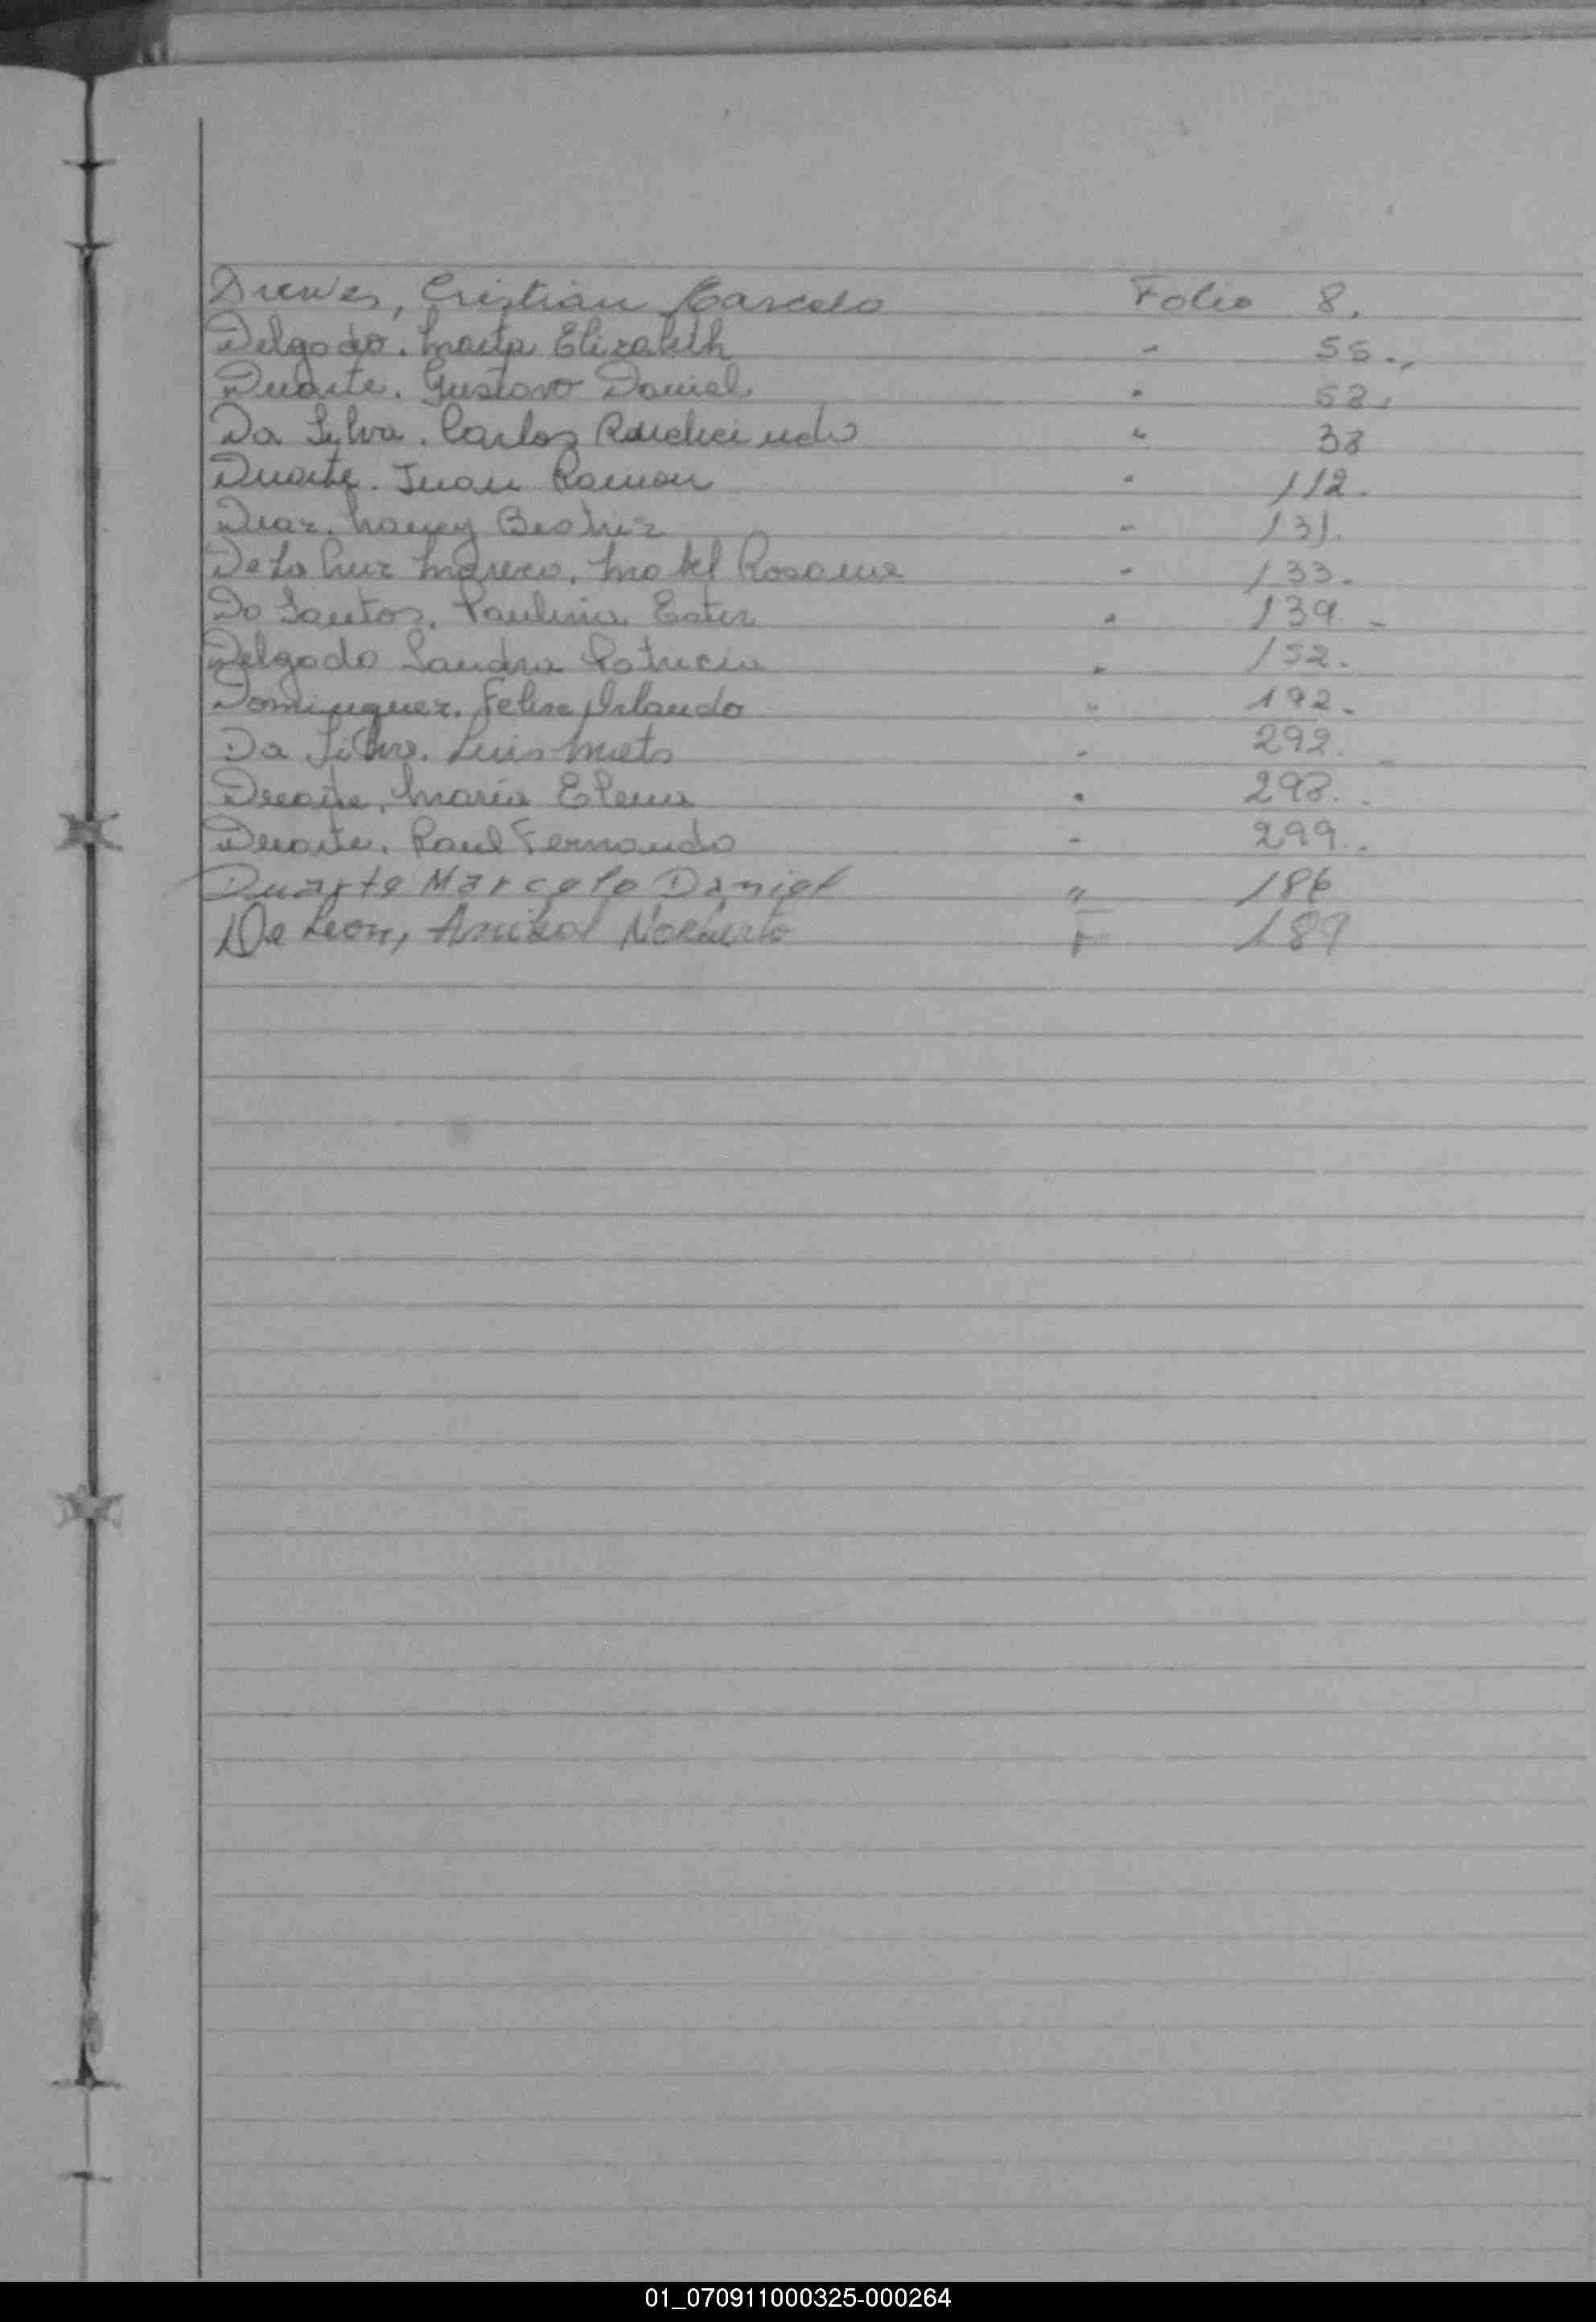 Drewes, Cristian Marcelo Folio 8.
Delgado. Marta Elizabeth - 55.,
Duarte. Gustavo Daniel - 58.
Da Sylva. Carlos " 38
Duarte. Juan Ramon - 112.
Diaz. Nancy Beatriz - 131.
De La Cruz Marero. Mabel Rosana - 133.
Do Santos. Paulina Ester " 139. -
Delgado Sandra Patricia " 152.
Dominguez. Felix Orlando " 192.
Da Silva. Luis - 292. -
Duarte, Maria Elena - 298.
Duarte. Raul Fernando - 299.
Duarte Marcelo Daniel " 186
De Leon, Anibal Norberto F 189
01_070911000325-000264